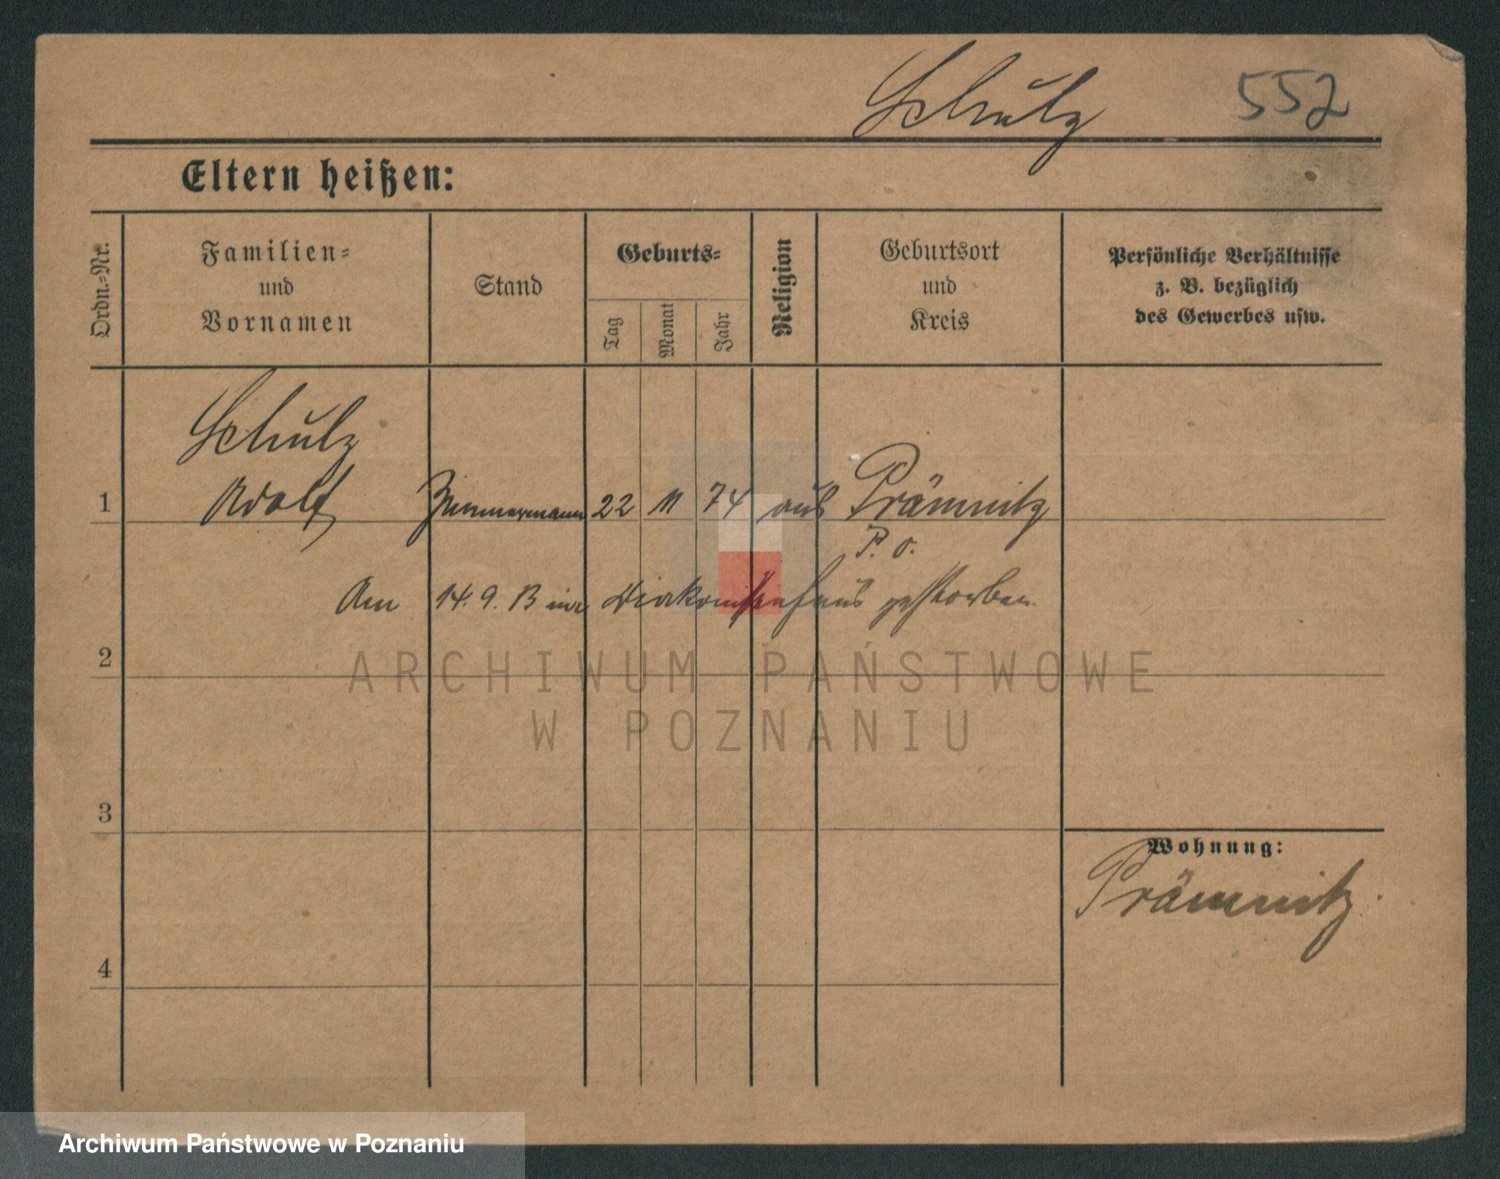 Schulz 552
Eltern heißen:
Ordn.-Nr.
Familien-
und
Vornamen
Stand
Geburts-
Tag
Monat
Jahr
Religion
Geburtsort
und
Kreis
Persönliche Verhältnisse
z. B. bezüglich
des Gewerbes usw.
Schulz
1 Adolf Zimmermann 22 11 74 aus Prämnitz
P. O.
Am 14. 9. 13 im Diakonissenhaus gestorben.
2
ARCHIWUM PAŃSTWOWE
W POZNANIU
3
Wohnung:
Prämnitz.
4
Archiwum Państwowe w Poznaniu